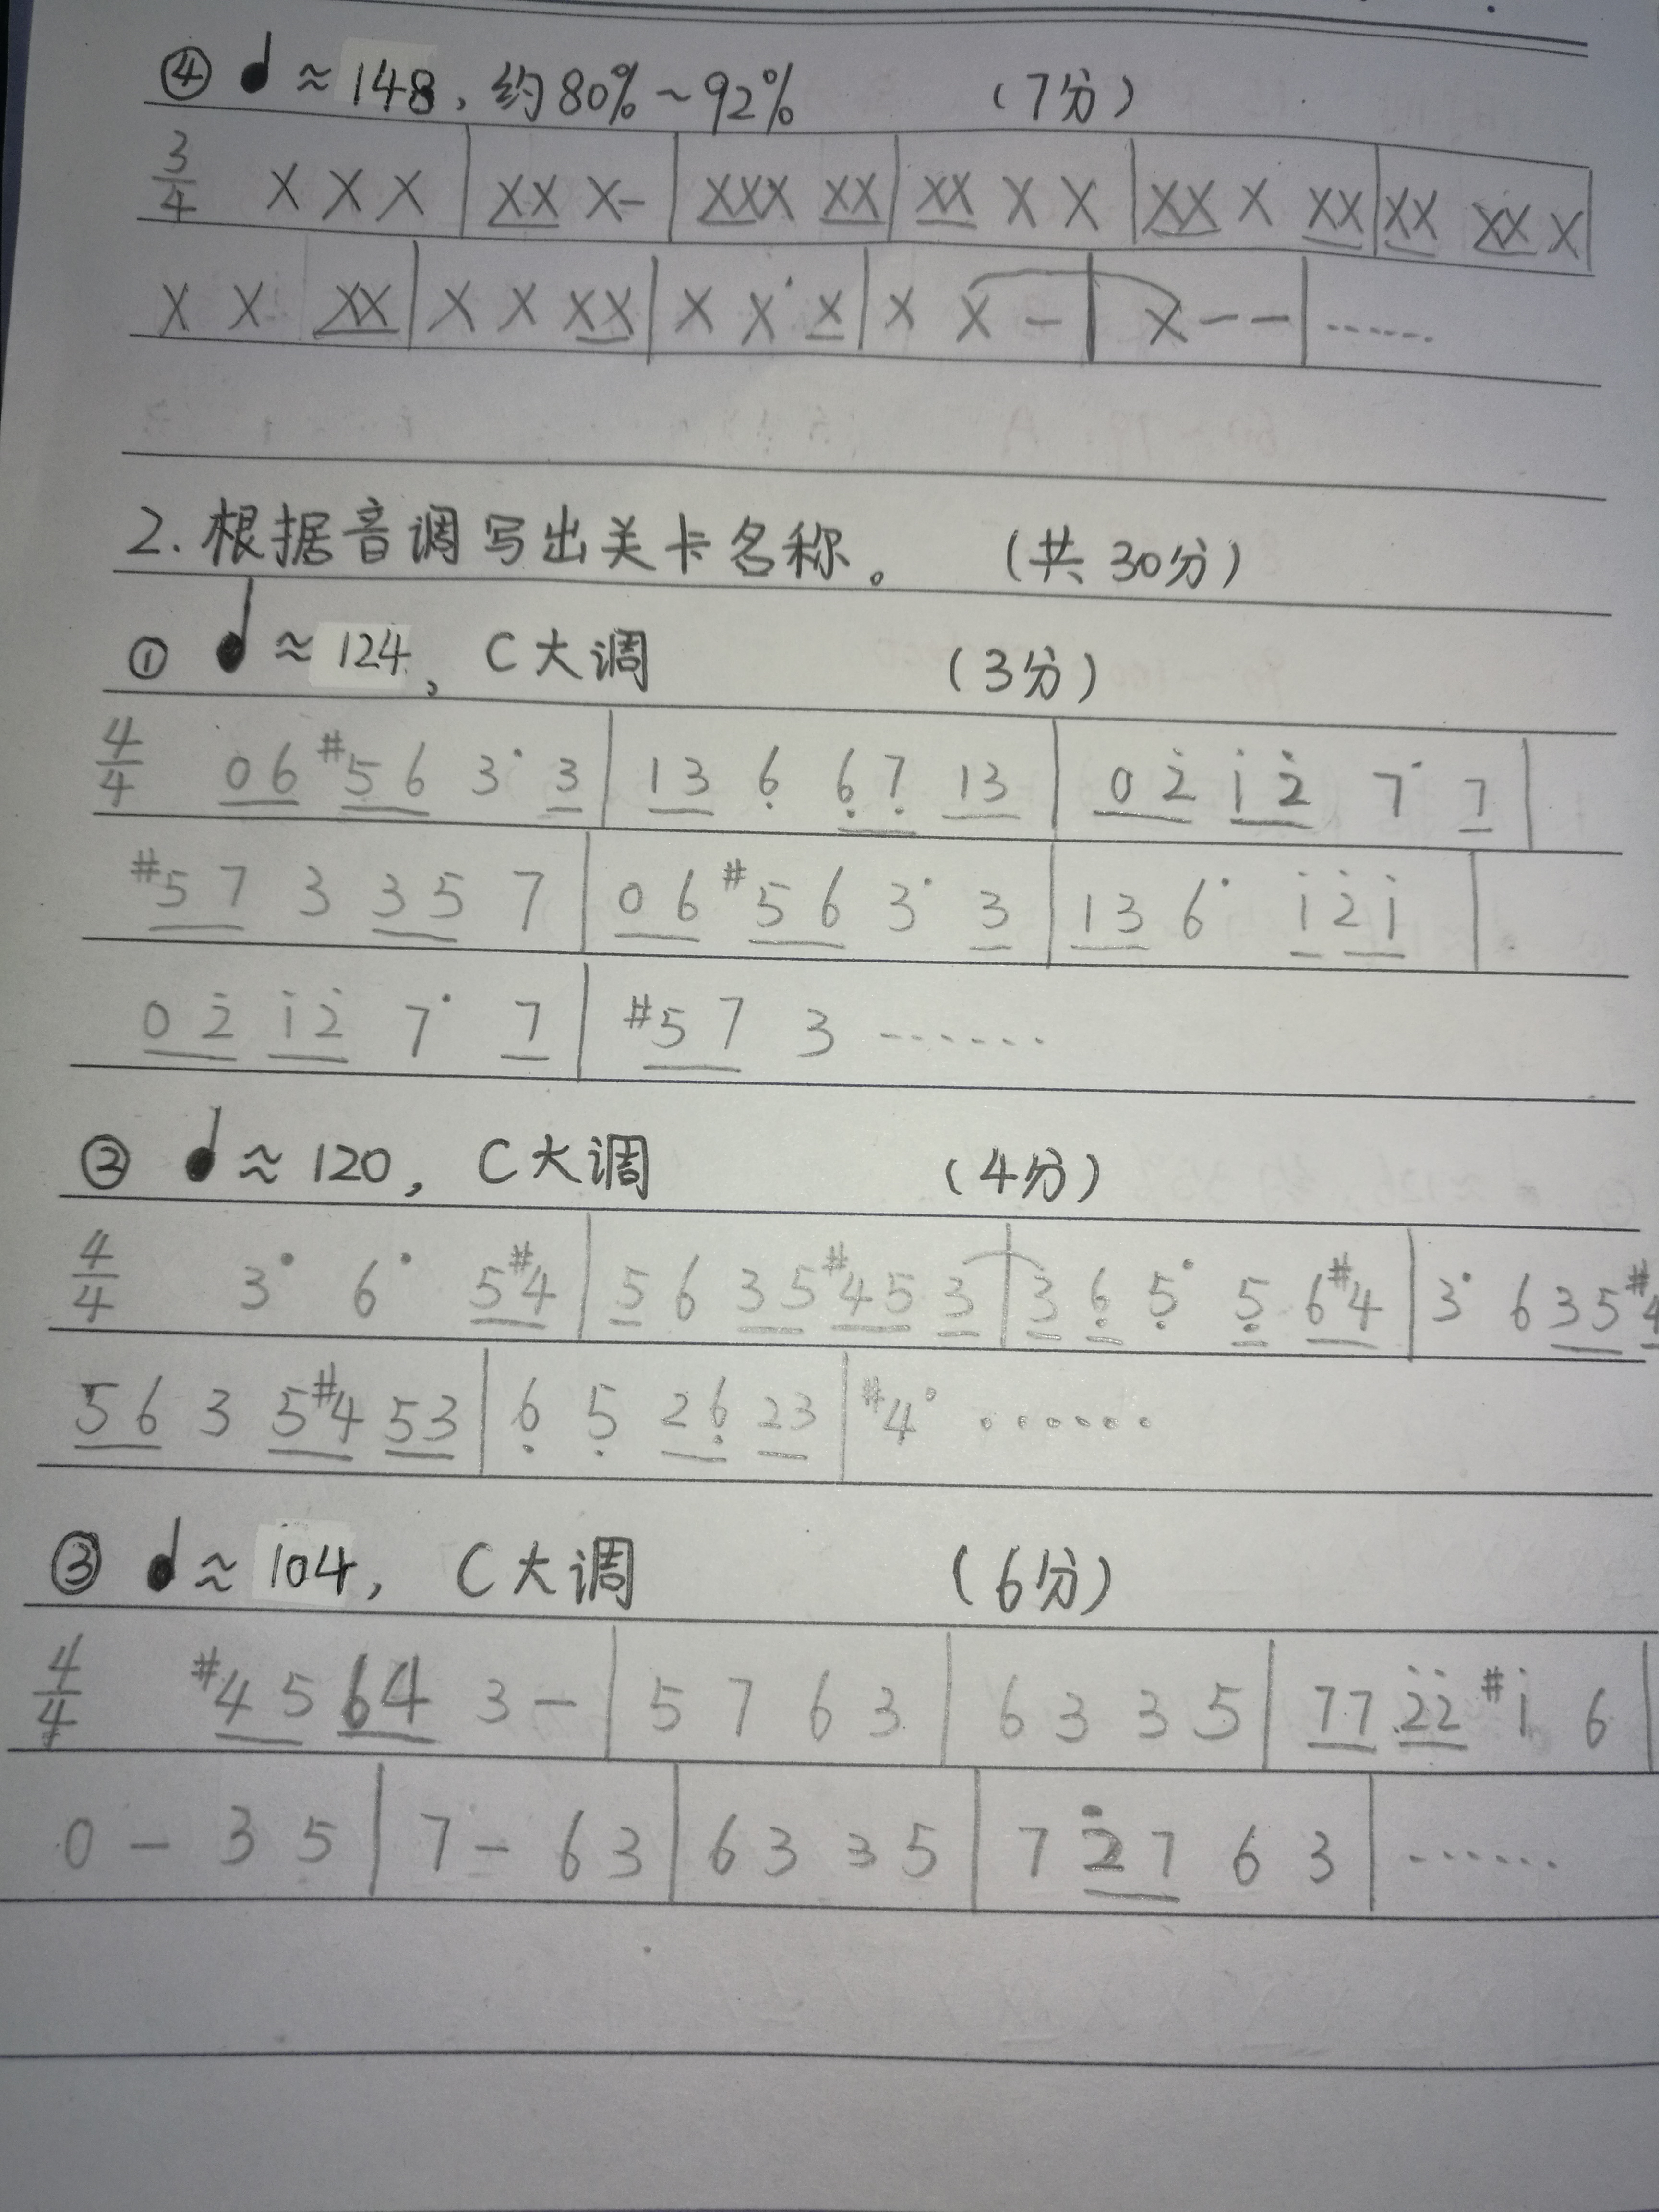 ④ ♩≈148，约80%~92% （7分）
3/4 X X X | XX X- | XXX XX | XX X X | XX X XX | XX XX X |
X X XX | X X XX | X X· X | X X - | X -- | ……
2.根据音调写出关卡名称。 （共30分）
① ♩≈124，C大调 （3分）
4/4 06 #56 3· 3 | 13 6 67 13 | 02 12 7· 7 |
#57 3 35 7 | 06 #56 3· 3 | 13 6· 121 |
02 12 7· 7 | #57 3 ……
② ♩≈120，C大调 （4分）
4/4 3· 6· 5#4 | 5 6 35 #45 3 | 3 6 5· 5 6#4 | 3· 6 35 #4
56 3 5#4 53 | 6 5 26 23 | #4· ……
③ ♩≈104，C大调 （6分）
4/4 #45 64 3- | 5 7 6 3 | 6 3 3 5 | 77 22 #1 6 |
0 - 3 5 | 7 - 6 3 | 6 3 3 5 | 7 27 6 3 | ……